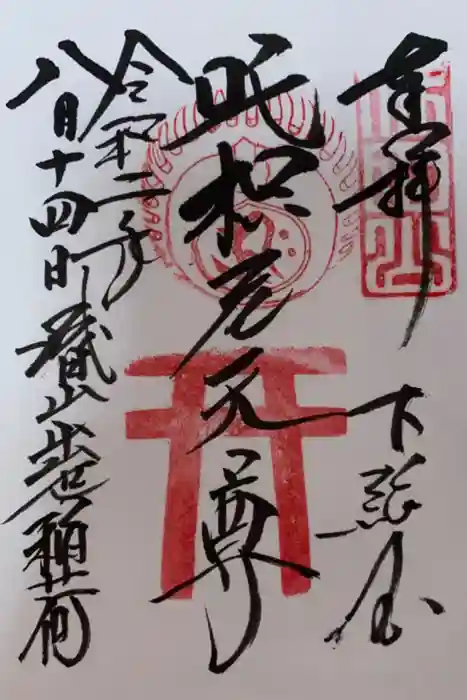 奉拝
下総国
毗枳尼天尊
令和二年
八月十四日 出世稲荷